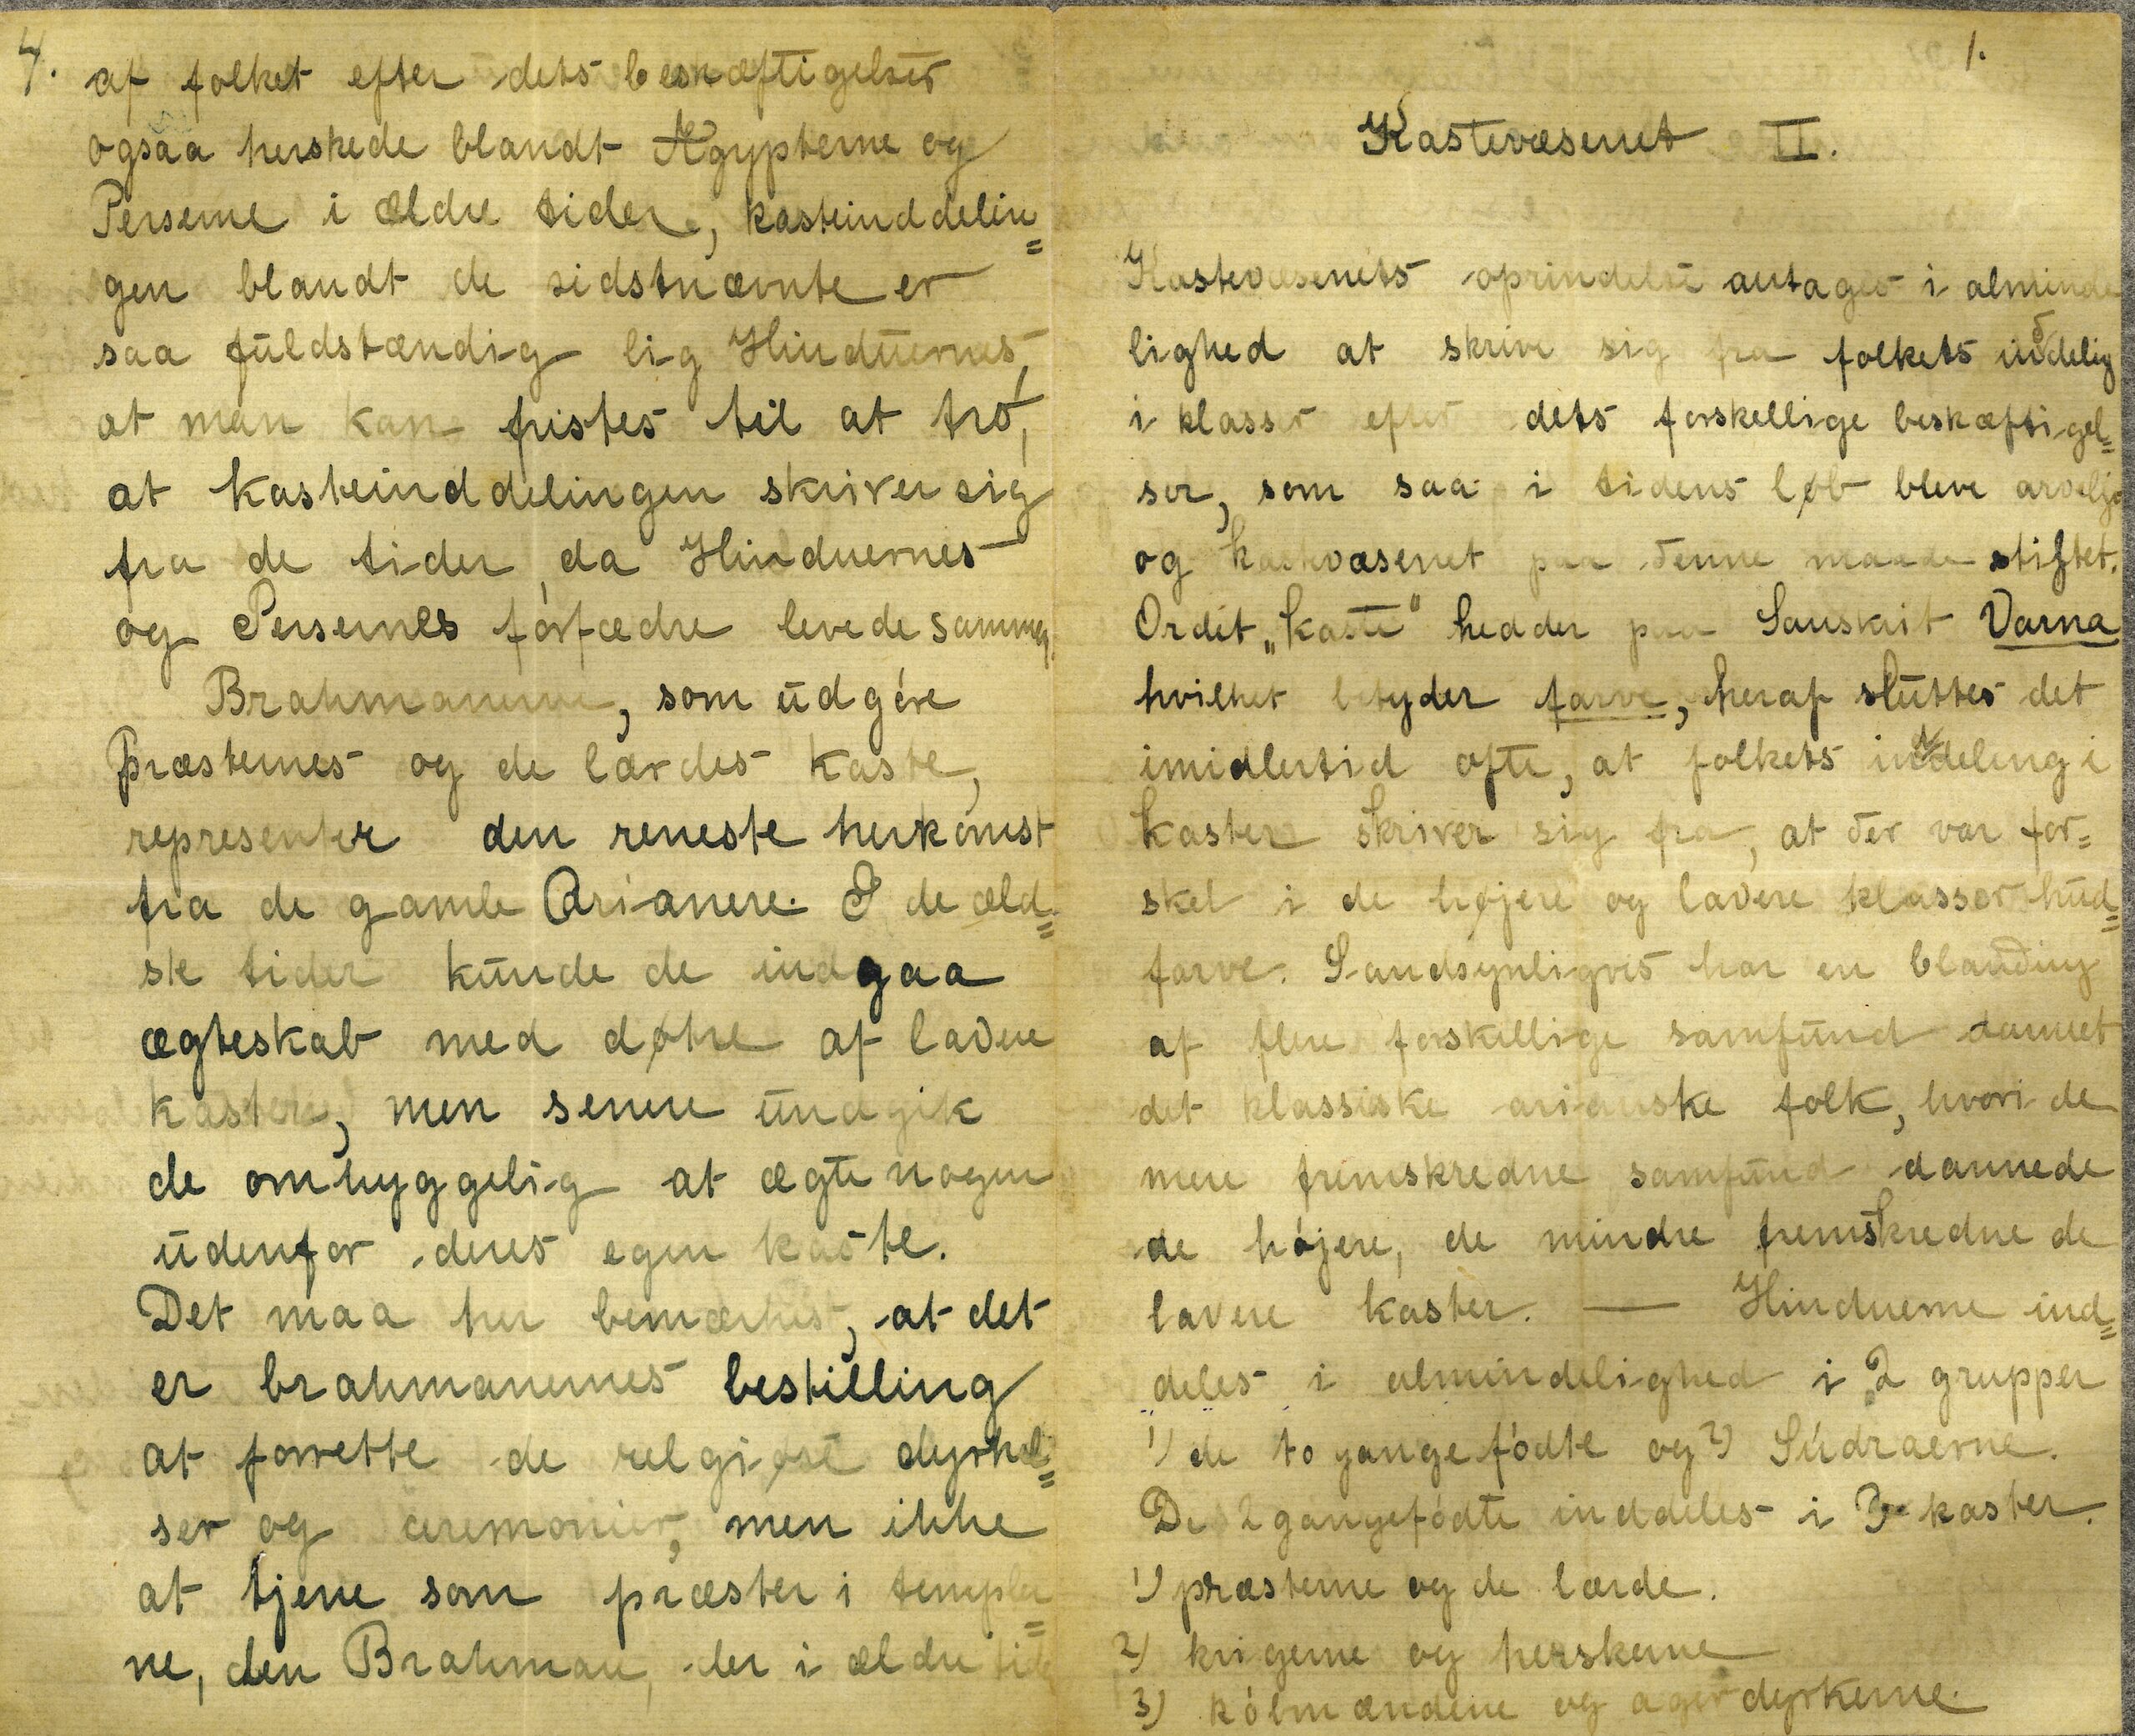 4.
af folket efter dets beskæftigelser
ogsaa herskede blandt Ægypterne og
Perserne i ældre tider, kasteinddelin=
gen blandt de sidstnævnte er
saa fuldstændig lig Hinduernes,
at man kan fristes til at tro,
at kasteinddelingen skriver sig
fra de tider, da Hinduernes
og Persernes forfædre levede sammen.
Brahmanerne, som udgöre
Præsternes og de lærdes kaste,
representer den reneste herkomst
fra de gamle Arianere. I de æld=
ste tider kunde de indgaa
ægteskab med døtre af lavere
kastere, men senere undgik
de omhyggelig at ægte nogen
udenfor deres egen kaste.
Det maa her bemærkes, at det
er brahmanernes bestilling
at forrette de religiøse dyrkel=
ser og ceremonier, men ikke
at tjene som præster i temple=
ne, den Brahman, der i ældre tid
1.
Kastevæsenet II.
Kastevæsenets oprindelse antages i alminde
lighed at skrive sig fra folkets inddeling
i klasser efter dets forskellige beskæftigel=
ser, som saa i tidens løb bleve arvelige
og kastevæsenet paa denne maade stiftet.
Ordet „kaste" hedder paa Sanskrit Varna
hvilket betyder farve, heraf sluttes det
imidlertid ofte, at folkets inddeling i
kaster skriver sig fra, at der var for=
skel i de højere og lavere klasser hud=
farve. Sandsynligvis har en blanding
af flere forskellige samfund dannet
det klassiske arianske folk, hvori de
mere fremskredne samfund dannede
de højere, de mindre fremskredne de
lavere kaster. — Hinduerne ind=
deles i almindelighed i 2 grupper
1) de to gange födte og 2) Súdraerne.
De 2 gangefödte inddeles i 3 kaster.
1) præsterne og de lærde.
2) krigerne og herskerne
3) köbmændene og agerdyrkerne.